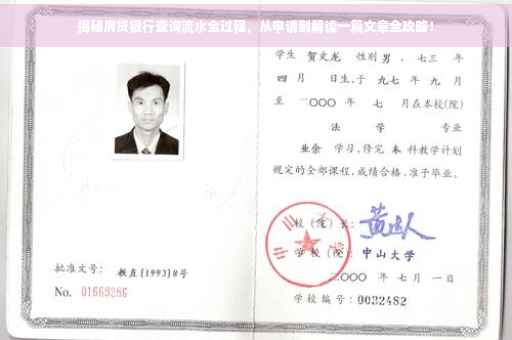 揭秘房贷银行查询流水全过程，从申请到解读一篇文章全攻略！
学生 贺文龙 性别 男 、七三 年
四 月 日生,于 九七 年 九 月
至 二〇〇〇 年 七 月在本校(院)
法 学 专业
业余 学习,修完 本 科教学计划
规定的全部课程,成绩合格,准予毕业。
校 (院) 长:
学 校 (院): 中山大学
二〇〇〇 年 七 月 一 日
学校编号: 0032482
批准文号: 教直[1993]8号
No. 01669286